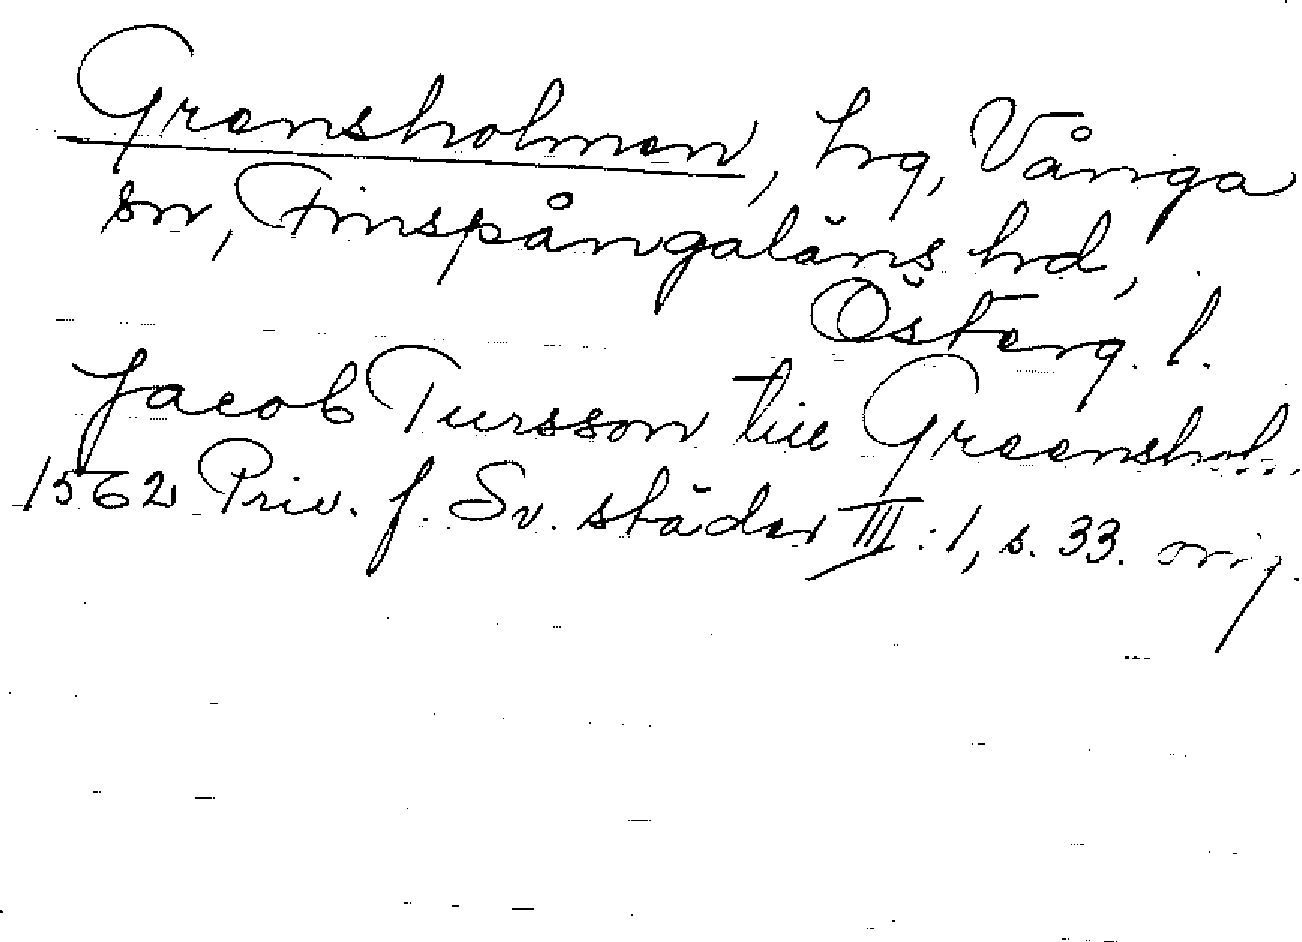 Grensholmen, hrg, Vånga
sn, Finspångaläns hrd,
Österg. l.
Jacob Tursson till Greenshol..
1562 Priv. f. Sv. städer III:1, s. 33. orig.